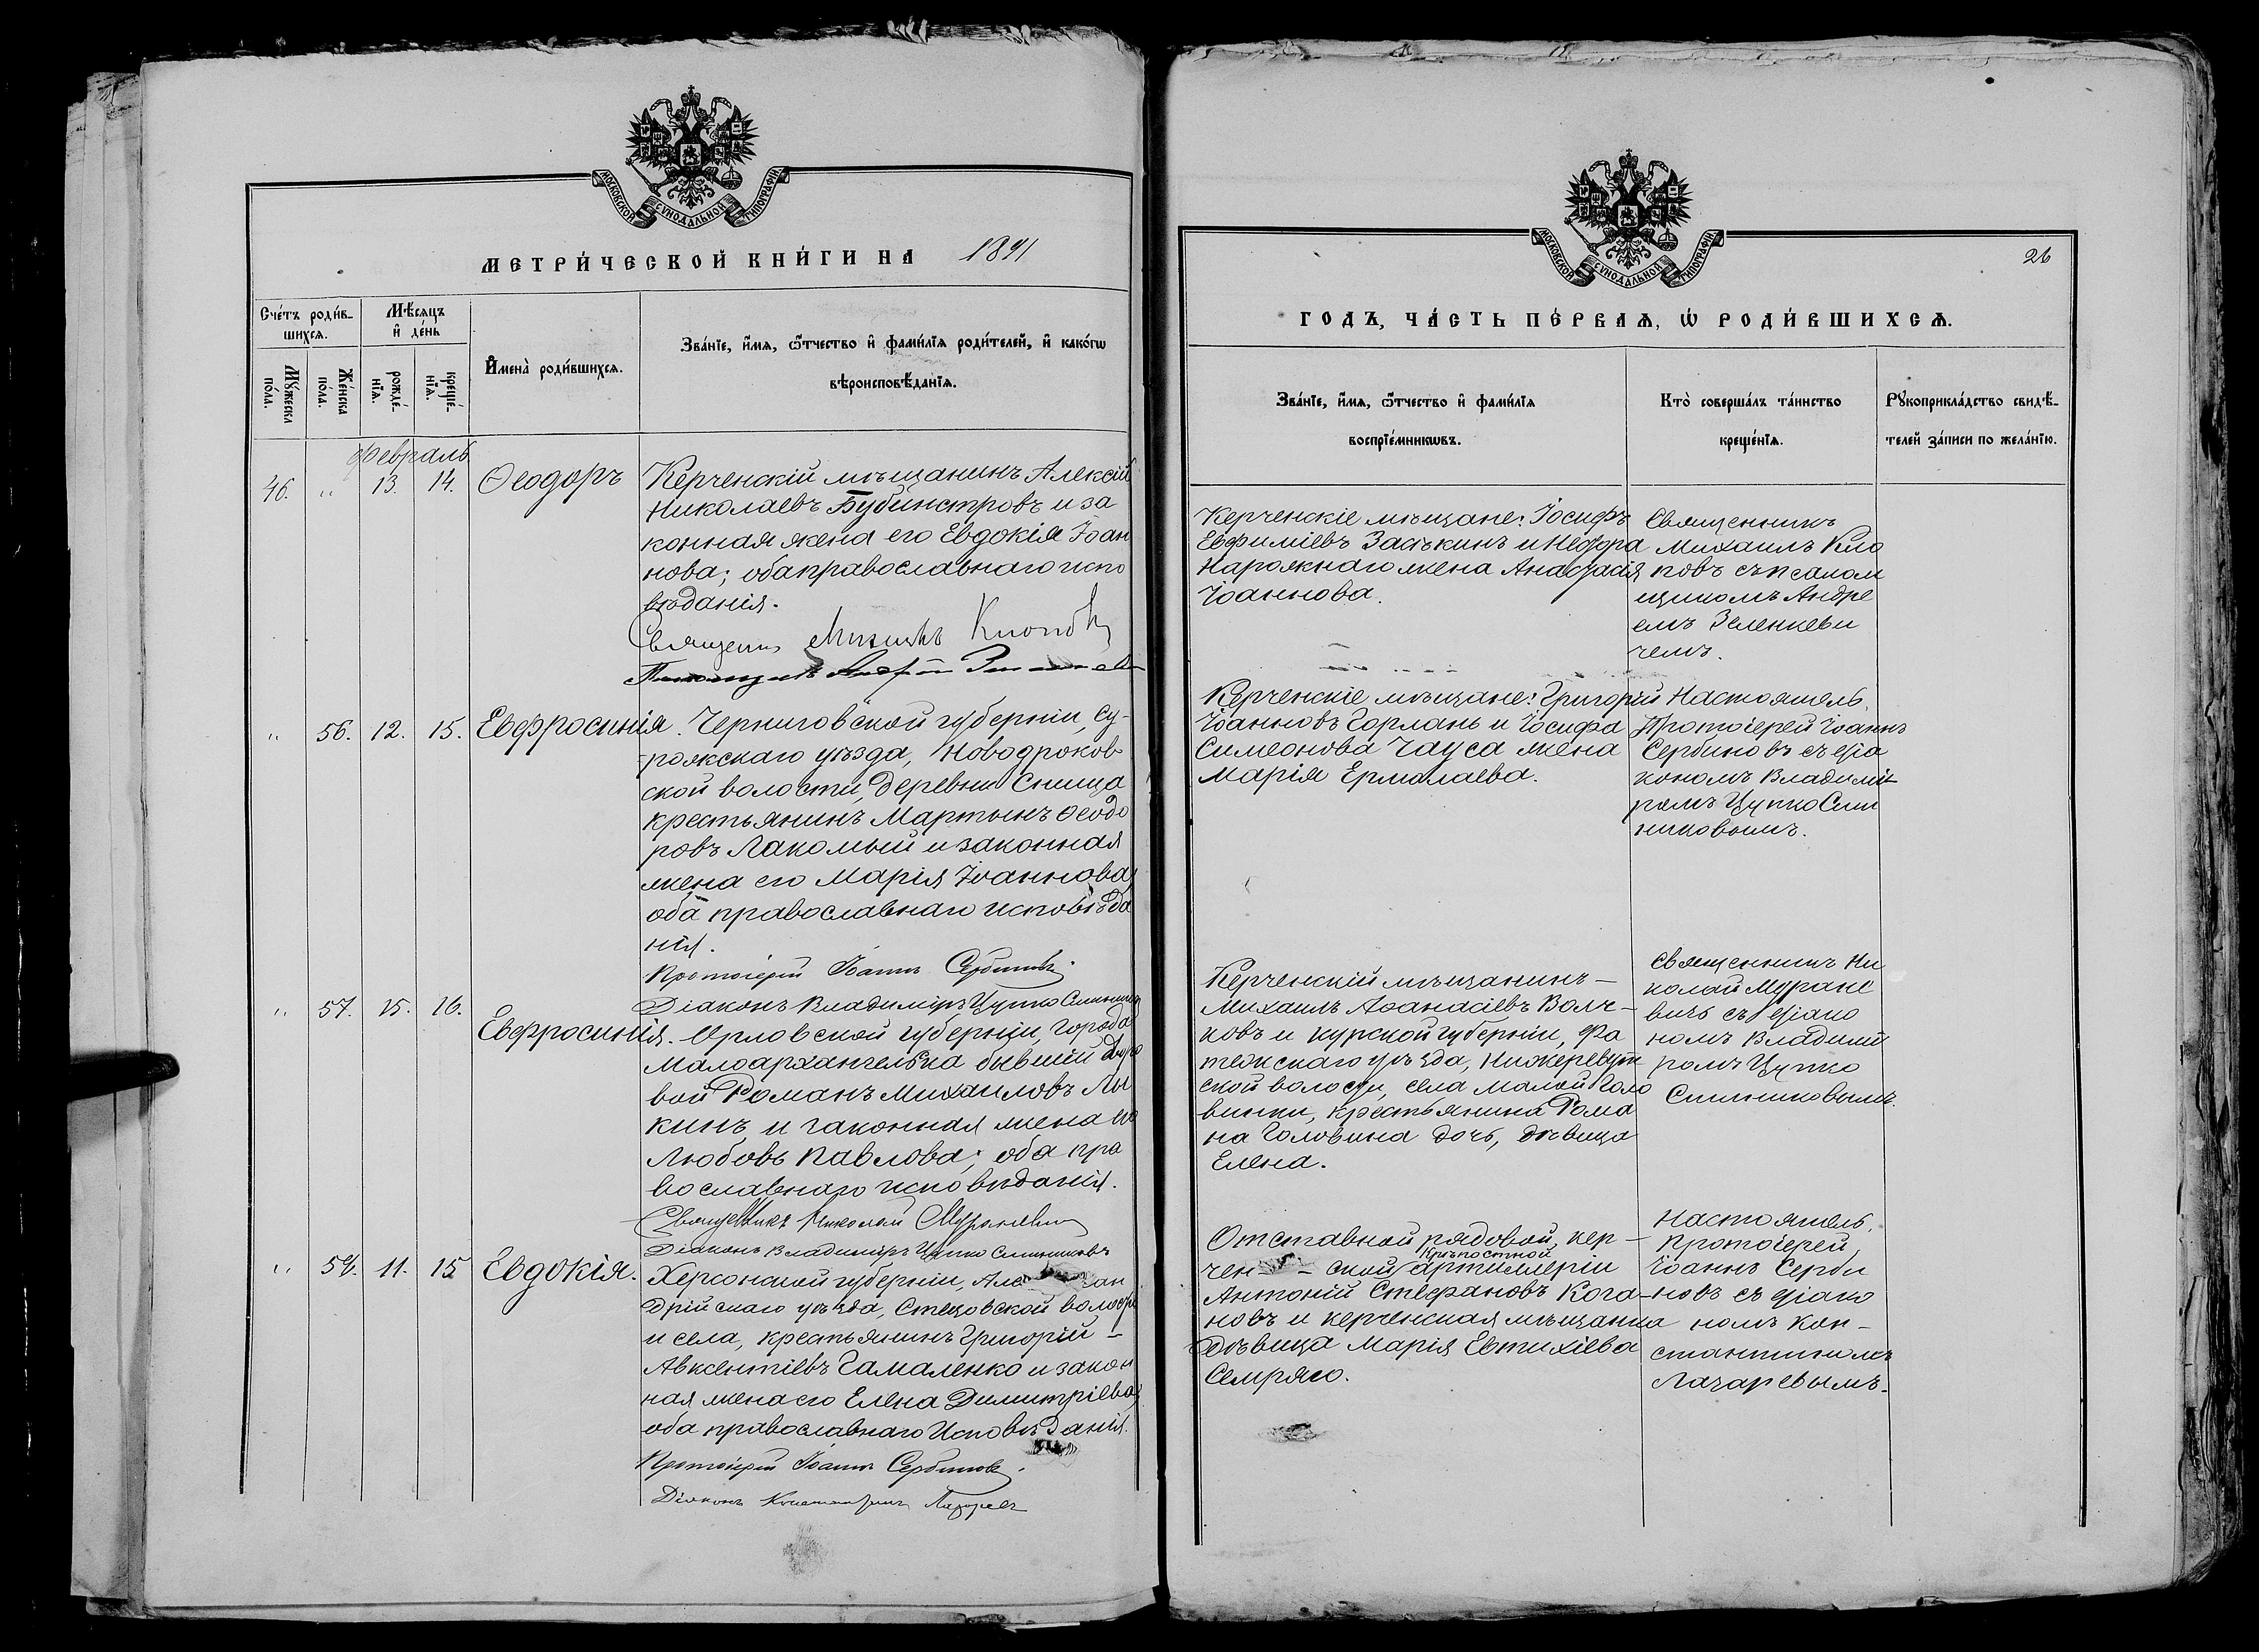 МОСКОВСКОЙ СѴНОДАЛЬНОЙ ТИПОГРАФІИ
МЕТРИ́ЧЕСКОЙ КНИ́ГИ НА 1891
Сче́тъ роди́в-
шихсѧ.
Мѣ́сѧцъ
и҆ де́нь
Мꙋ́жеска
по́ла.
Же́нска
по́ла.
рожде́-
нїѧ.
креще́-
нїѧ.
И҆мена̀ роди́вшихсѧ.
Зва́нїе, и҆́мѧ, ѻ҆́тчество и҆ фами́лїѧ роди́телей, и҆ како́гѡ
вѣроисповѣ́данїѧ.
Февраль
46. " 13. 14. Ѳеодоръ
Керченскій мѣщанинъ Алексій
Николаевъ Бубинстровъ и за
конная жена его Евдокія Іоан
нова; оба православнаго испо
вѣданія.
Священ. Михаилъ Клоповъ
Псаломщикъ Андрей
" 56. 12. 15. Евфросинія.
Черниговской губерніи, Су-
рожскаго уѣзда, Новодроков
ской волости, деревни Снища
крестьянинъ Мартынъ Ѳеодо
ровъ Лакомый и законная
жена его Марія Іоаннова;
оба православнаго исповѣда
нія.
Протоіерей Іоаннъ Сербиновъ.
Діаконъ Владиміръ Цупко Ситников
" 57. 15. 16. Евфросинія.
Орловской губерніи, города
Малоархангельска бывшій дворо
вой Романъ Михаиловъ Лы
кинъ и законная жена его
Любовь Павлова; оба пра
вославнаго исповѣданія.
Священникъ Николай Мураневичъ
Діаконъ Владиміръ Цупко Ситниковъ
" 58. 11. 15. Евдокія.
Херсонской губерніи, Алексан
дрійскаго уѣзда, Стецовской волости
и села, крестьянинъ Григорій
Авксентіевъ Гамаленко и закон
ная жена его Елена Димитріева;
оба православнаго исповѣданія.
Протоіерей Іоаннъ Сербиновъ.
Діаконъ Константинъ Лазарев
МОСКОВСКОЙ СѴНОДАЛЬНОЙ ТИПОГРАФІИ
26
ГОДЪ, ЧА́СТЬ ПЕ́РВАѦ, Ѡ РОДИ́ВШИХСѦ.
Зва́нїе, и҆́мѧ, ѻ҆́тчество и҆ фами́лїѧ
воспрїе́мникѡвъ.
Кто̀ соверша́лъ та́инство
креще́нїѧ.
Рꙋкоприкла́дство свидѣ́-
телей за́писи по жела́нїю.
Керченскіе мѣщане: Іосифъ
Евфиміевъ Заськинъ и Неофра
Нарожнаго жена Анастасія
Іоаннова.
Священникъ
Михаилъ Кло
повъ съ псалом
щикомъ Андре
емъ Зеленкеви
чемъ.
Керченскіе мѣщане: Григорій
Іоанновъ Горлань и Іосифа
Симеонова Чауса жена
Марія Ермолаева.
Настоятель,
Протоіерей Іоаннъ
Сербиновъ съ діа
кономъ Владимі
ромъ Цупко Сит
никовымъ.
Керченскій мѣщанинъ
Михаилъ Аѳанасіевъ Волч-
ковъ и Курской губерніи, Фа
тежскаго уѣзда, Нижеревут
ской волости, села Малой Голо
винки, крестьянина Рома
на Головина дочь, дѣвица
Елена.
Священникъ Ни
колай Муране
вичъ съ діако
номъ Владимі
ромъ Цупко
Ситниковымъ.
Отставной рядовой, кер-
чен- - ской крѣпостной артиллеріи
Антоній Стефановъ Кога-
новъ и керченская мѣщанка
дѣвица Марія Евтихіева
Семряго.
Настоятель,
протоіерей
Іоаннъ Серби
новъ съ діако
номъ Кон-
стантиномъ
Лазаревымъ.